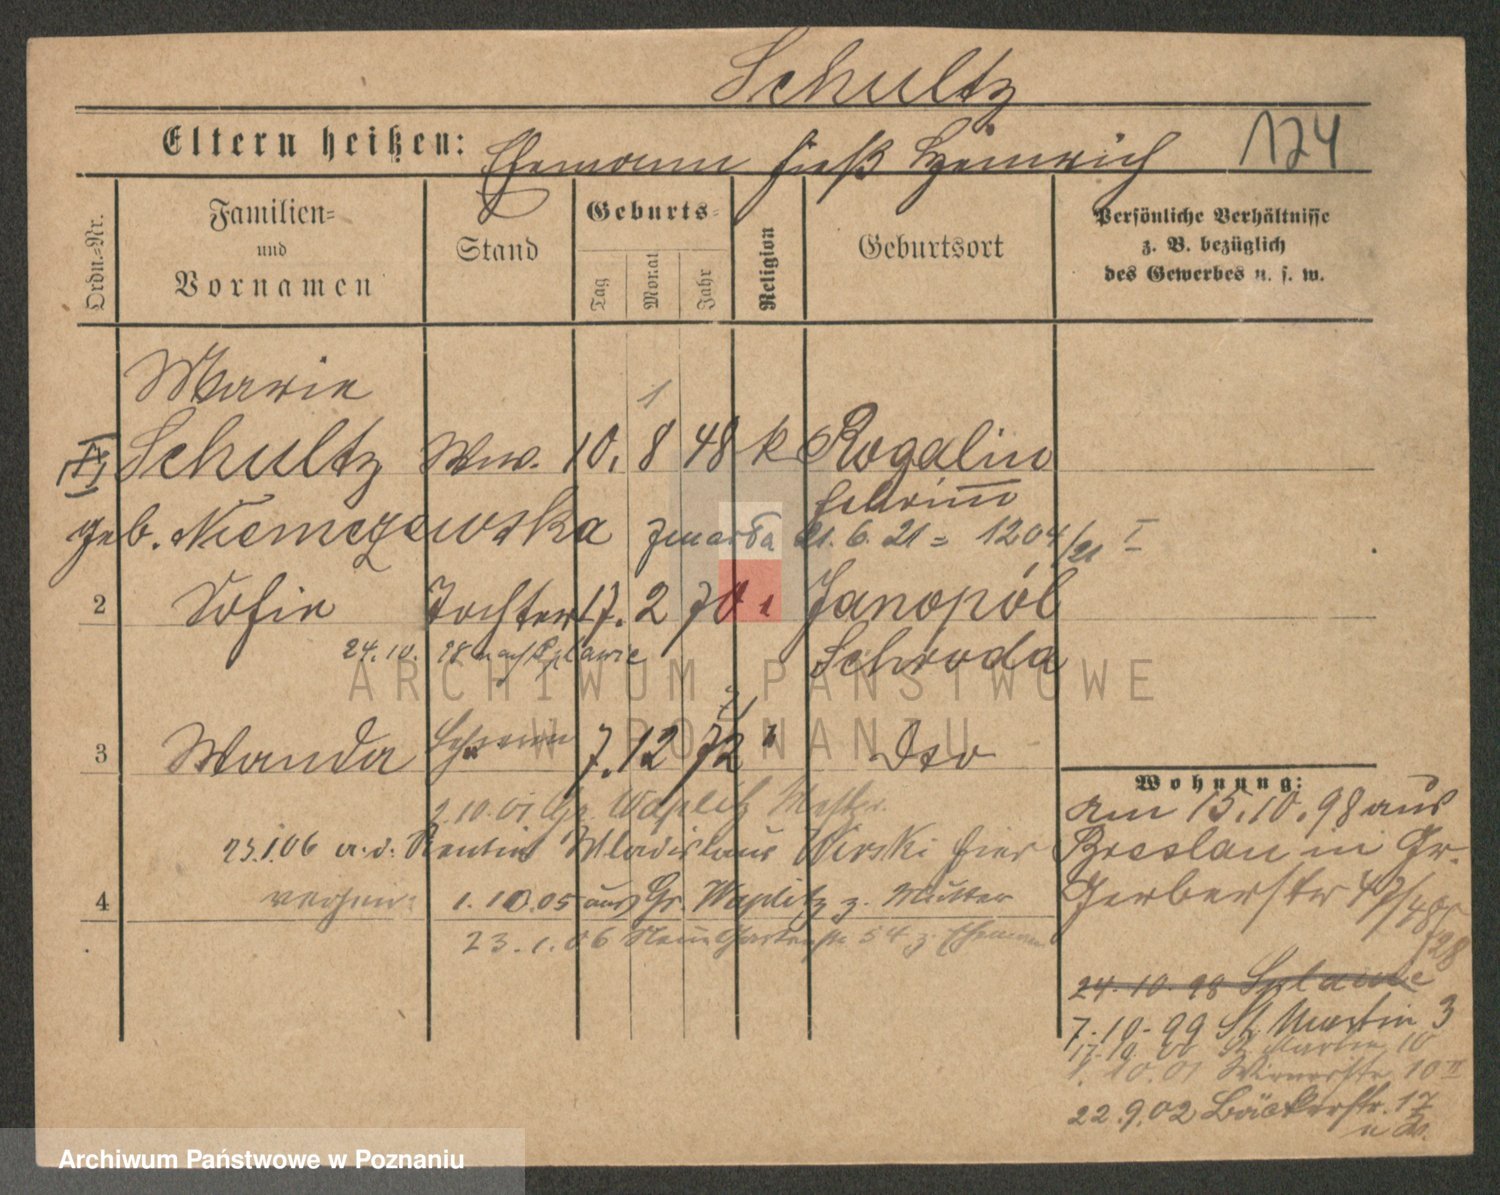 Schultz
Eltern heißen: Ehemann hieß Heinrich 124
Ordn.-Nr.
Familien- und Vornamen
Stand
Geburts-
Tag Monat Jahr
Religion
Geburtsort
Persönliche Verhältnisse
z. B. bezüglich
des Gewerbes u. s. w.
Marie
1
Schultz Ww. 10. 8 48 k Rogalin
Schrimm
geb. Niemczewska zmarła 21. 6. 21 = 1204/21 I
2 Sofie Tochter 17. 2 70 " Janopól
24.10. 98 nach Splawie Schroda
3 Wanda 7. 12 72 " Dto
2.10.01 Gr. Waplitz
23.1.06 a. d. Rentier Wladislaus Wirski hier
4 1.10.05 aus Gr. Waplitz z. Mutter
23.1.06 Neue Gartenstr. 54 z. Ehemann
Wohnung:
am 15.10.98 aus
Breslau in Gr.
Gerberstr 47/48
24.10.98 Splawie
7.10.99 St Martin 3
17.10.00 St Martin 10
1.10.01 10 II
22.9.02 Bäckerstr. 17
ARCHIWUM PAŃSTWOWE
W POZNANIU
Archiwum Państwowe w Poznaniu